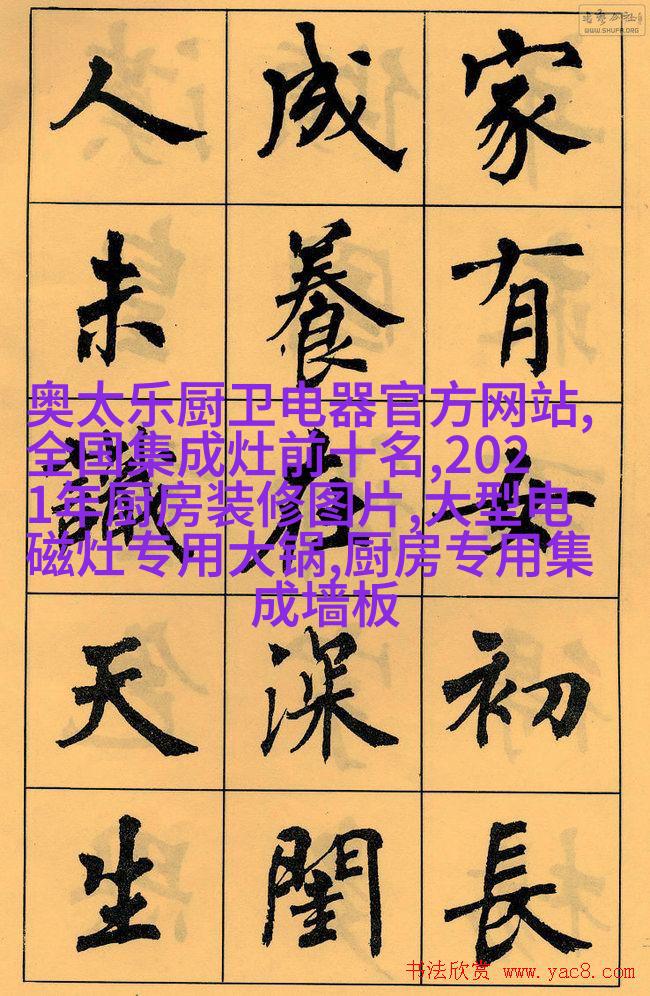 WWW.SHUFA.ORG
家有女初長
成養在深閨
人未識天生
奥太乐厨卫电器官方网站,
全国集成灶前十名,202
1年厨房装修图片,大型电
磁灶专用大锅,厨房专用集
成墙板
书法欣赏 www.yac8.com